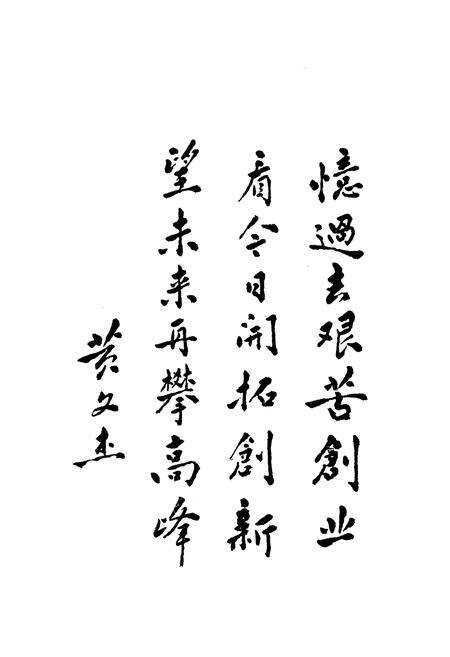 憶過去艰苦創业
看今日開拓創新
望未来再攀高峰
黄文杰